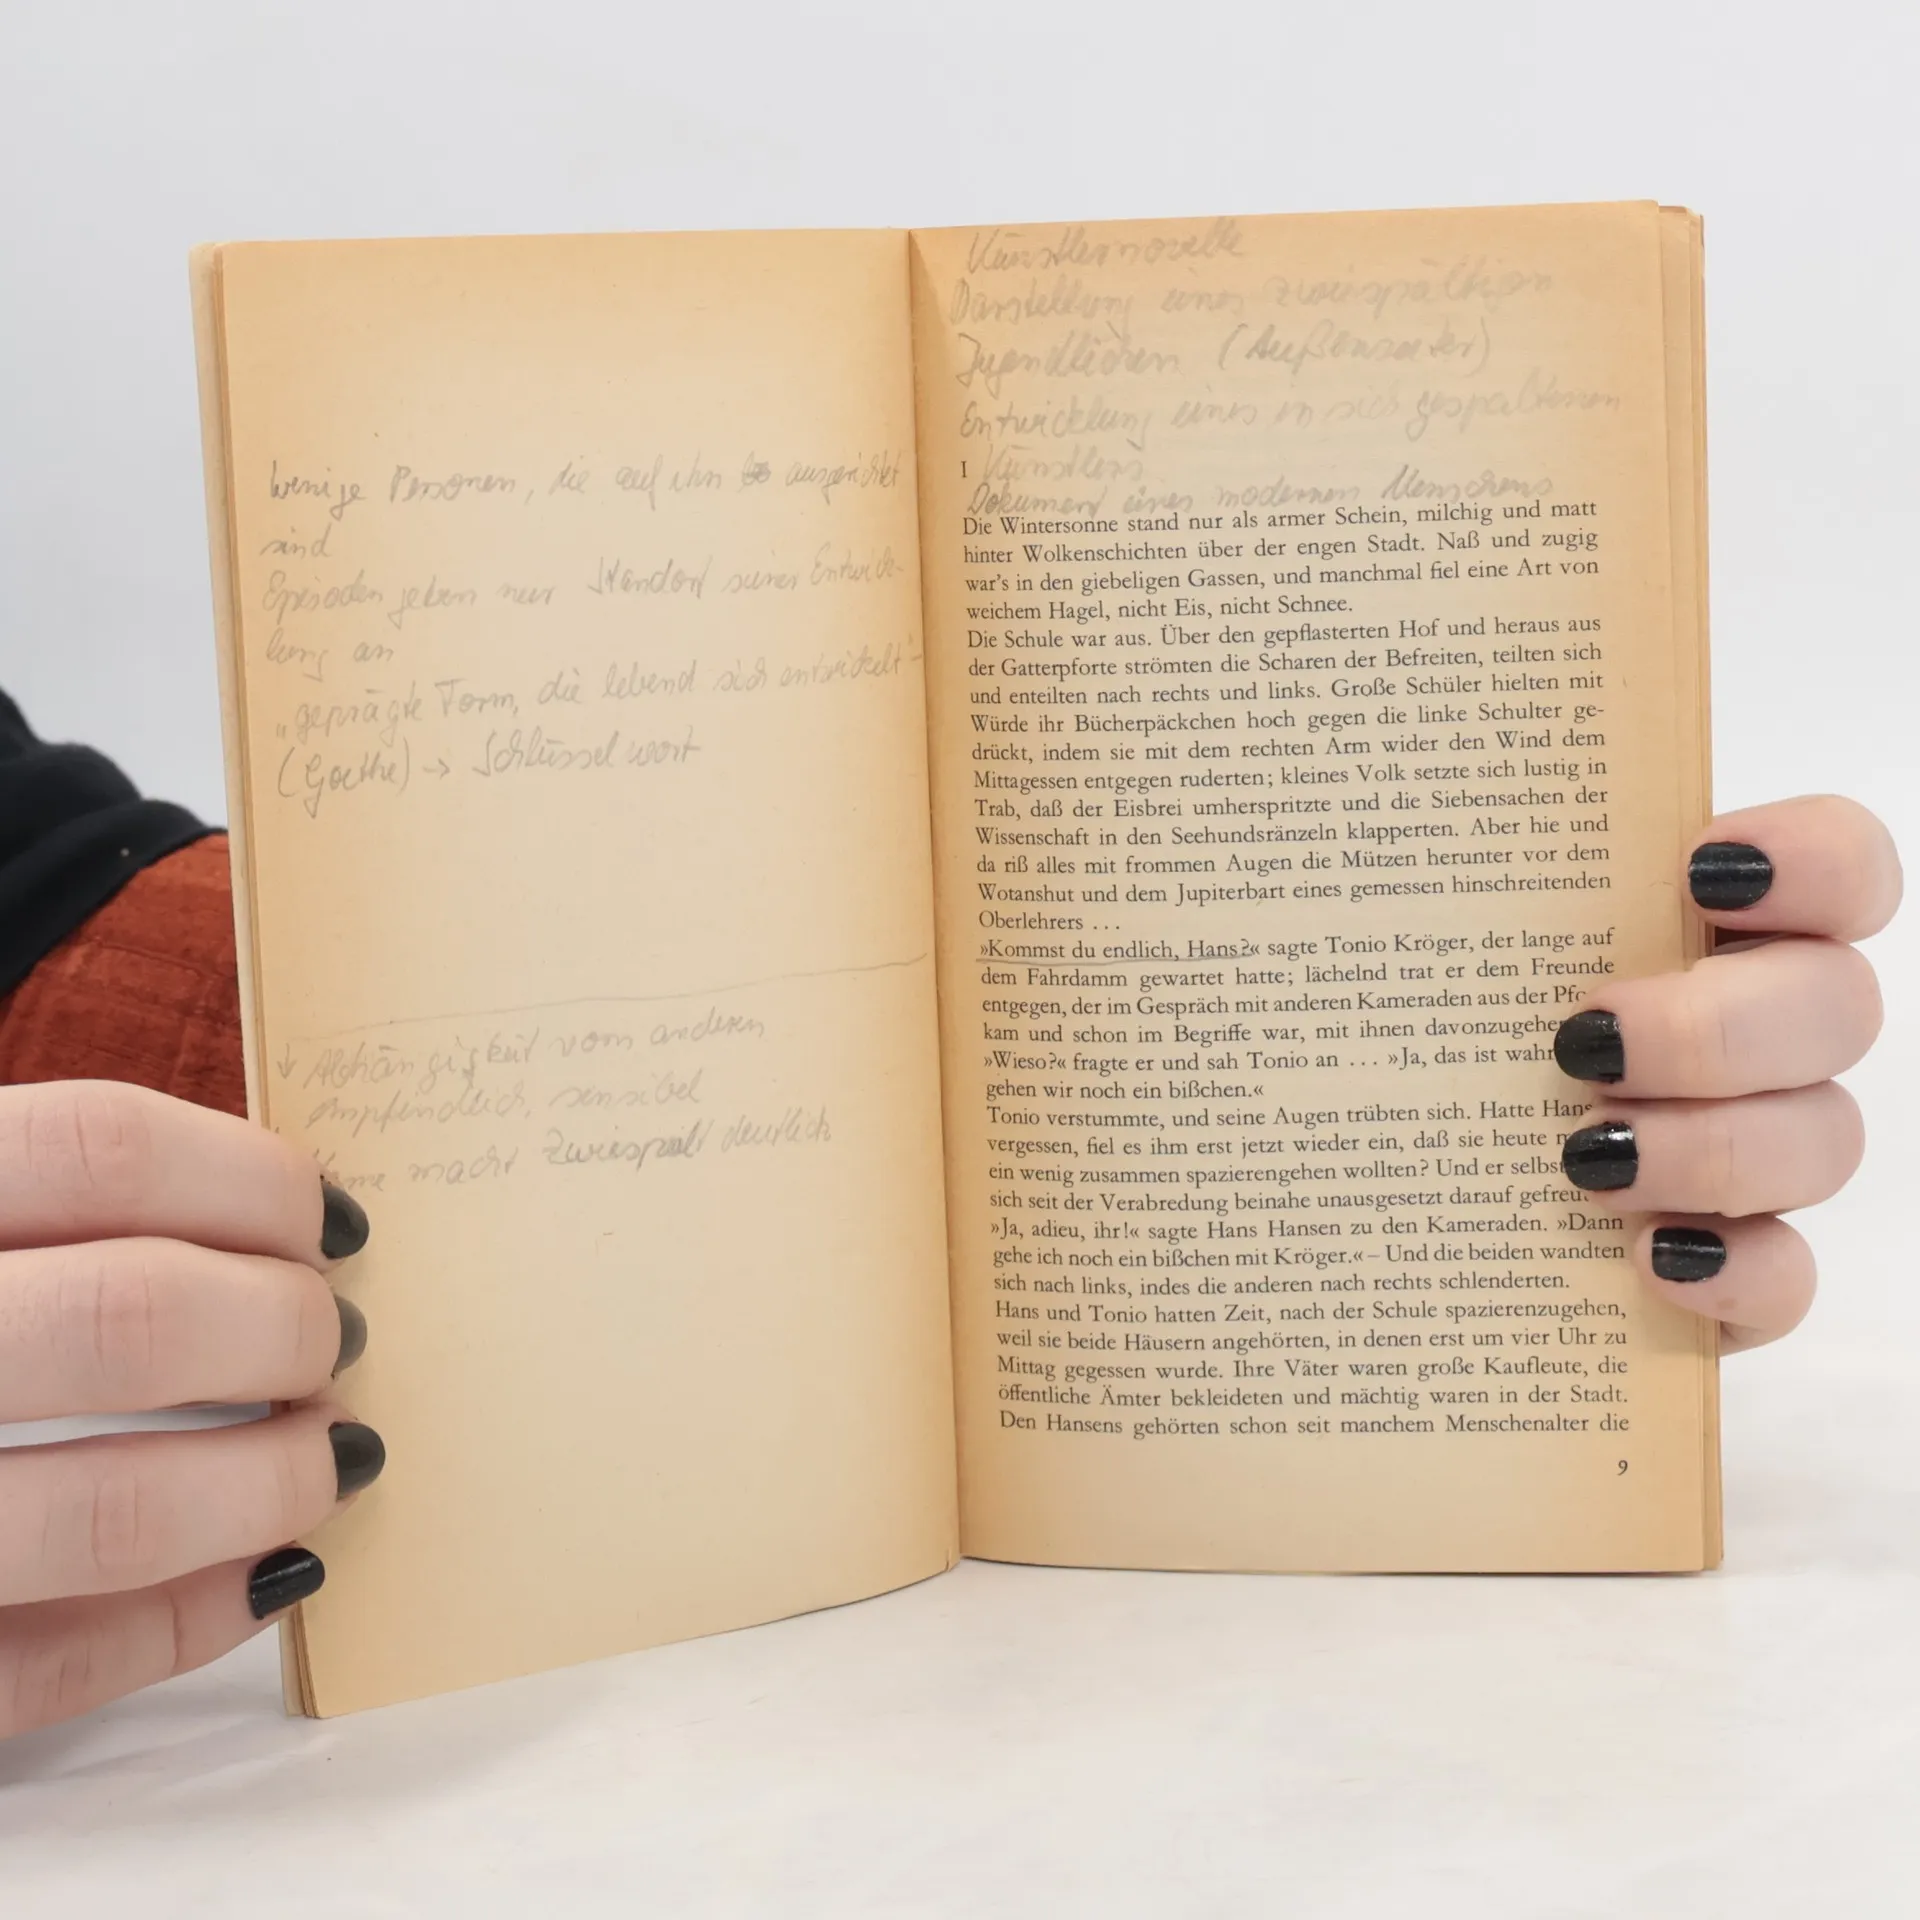 wenige Personen, die auf ihn ausgerichtet
sind
Episoden geben nur Standort seiner Entwick-
lung an
„geprägte Form, die lebend sich entwickelt"-
(Goethe) → Schlüsselwort
↓ Abhängigkeit vom anderen
empfindlich, sensibel
macht Zwiespalt deutlich
Künstlernovelle
Darstellung eines zwiespältigen
Jugendlichen (Außenseiter)
Entwicklung eines in sich gespaltenen
I Künstlers
Dokument eines modernen Menschens
Die Wintersonne stand nur als armer Schein, milchig und matt
hinter Wolkenschichten über der engen Stadt. Naß und zugig
war's in den giebeligen Gassen, und manchmal fiel eine Art von
weichem Hagel, nicht Eis, nicht Schnee.
Die Schule war aus. Über den gepflasterten Hof und heraus aus
der Gatterpforte strömten die Scharen der Befreiten, teilten sich
und enteilten nach rechts und links. Große Schüler hielten mit
Würde ihr Bücherpäckchen hoch gegen die linke Schulter ge-
drückt, indem sie mit dem rechten Arm wider den Wind dem
Mittagessen entgegen ruderten; kleines Volk setzte sich lustig in
Trab, daß der Eisbrei umherspritzte und die Siebensachen der
Wissenschaft in den Seehundsränzeln klapperten. Aber hie und
da riß alles mit frommen Augen die Mützen herunter vor dem
Wotanshut und dem Jupiterbart eines gemessen hinschreitenden
Oberlehrers ...
»Kommst du endlich, Hans?« sagte Tonio Kröger, der lange auf
dem Fahrdamm gewartet hatte; lächelnd trat er dem Freunde
entgegen, der im Gespräch mit anderen Kameraden aus der Pfo
kam und schon im Begriffe war, mit ihnen davonzugehe
»Wieso?« fragte er und sah Tonio an ... »Ja, das ist wahr
gehen wir noch ein bißchen.«
Tonio verstummte, und seine Augen trübten sich. Hatte Hans
vergessen, fiel es ihm erst jetzt wieder ein, daß sie heute
ein wenig zusammen spazierengehen wollten? Und er selbst
sich seit der Verabredung beinahe unausgesetzt darauf gefreu
»Ja, adieu, ihr!« sagte Hans Hansen zu den Kameraden. »Dann
gehe ich noch ein bißchen mit Kröger.« – Und die beiden wandten
sich nach links, indes die anderen nach rechts schlenderten.
Hans und Tonio hatten Zeit, nach der Schule spazierenzugehen,
weil sie beide Häusern angehörten, in denen erst um vier Uhr zu
Mittag gegessen wurde. Ihre Väter waren große Kaufleute, die
öffentliche Ämter bekleideten und mächtig waren in der Stadt.
Den Hansens gehörten schon seit manchem Menschenalter die
9